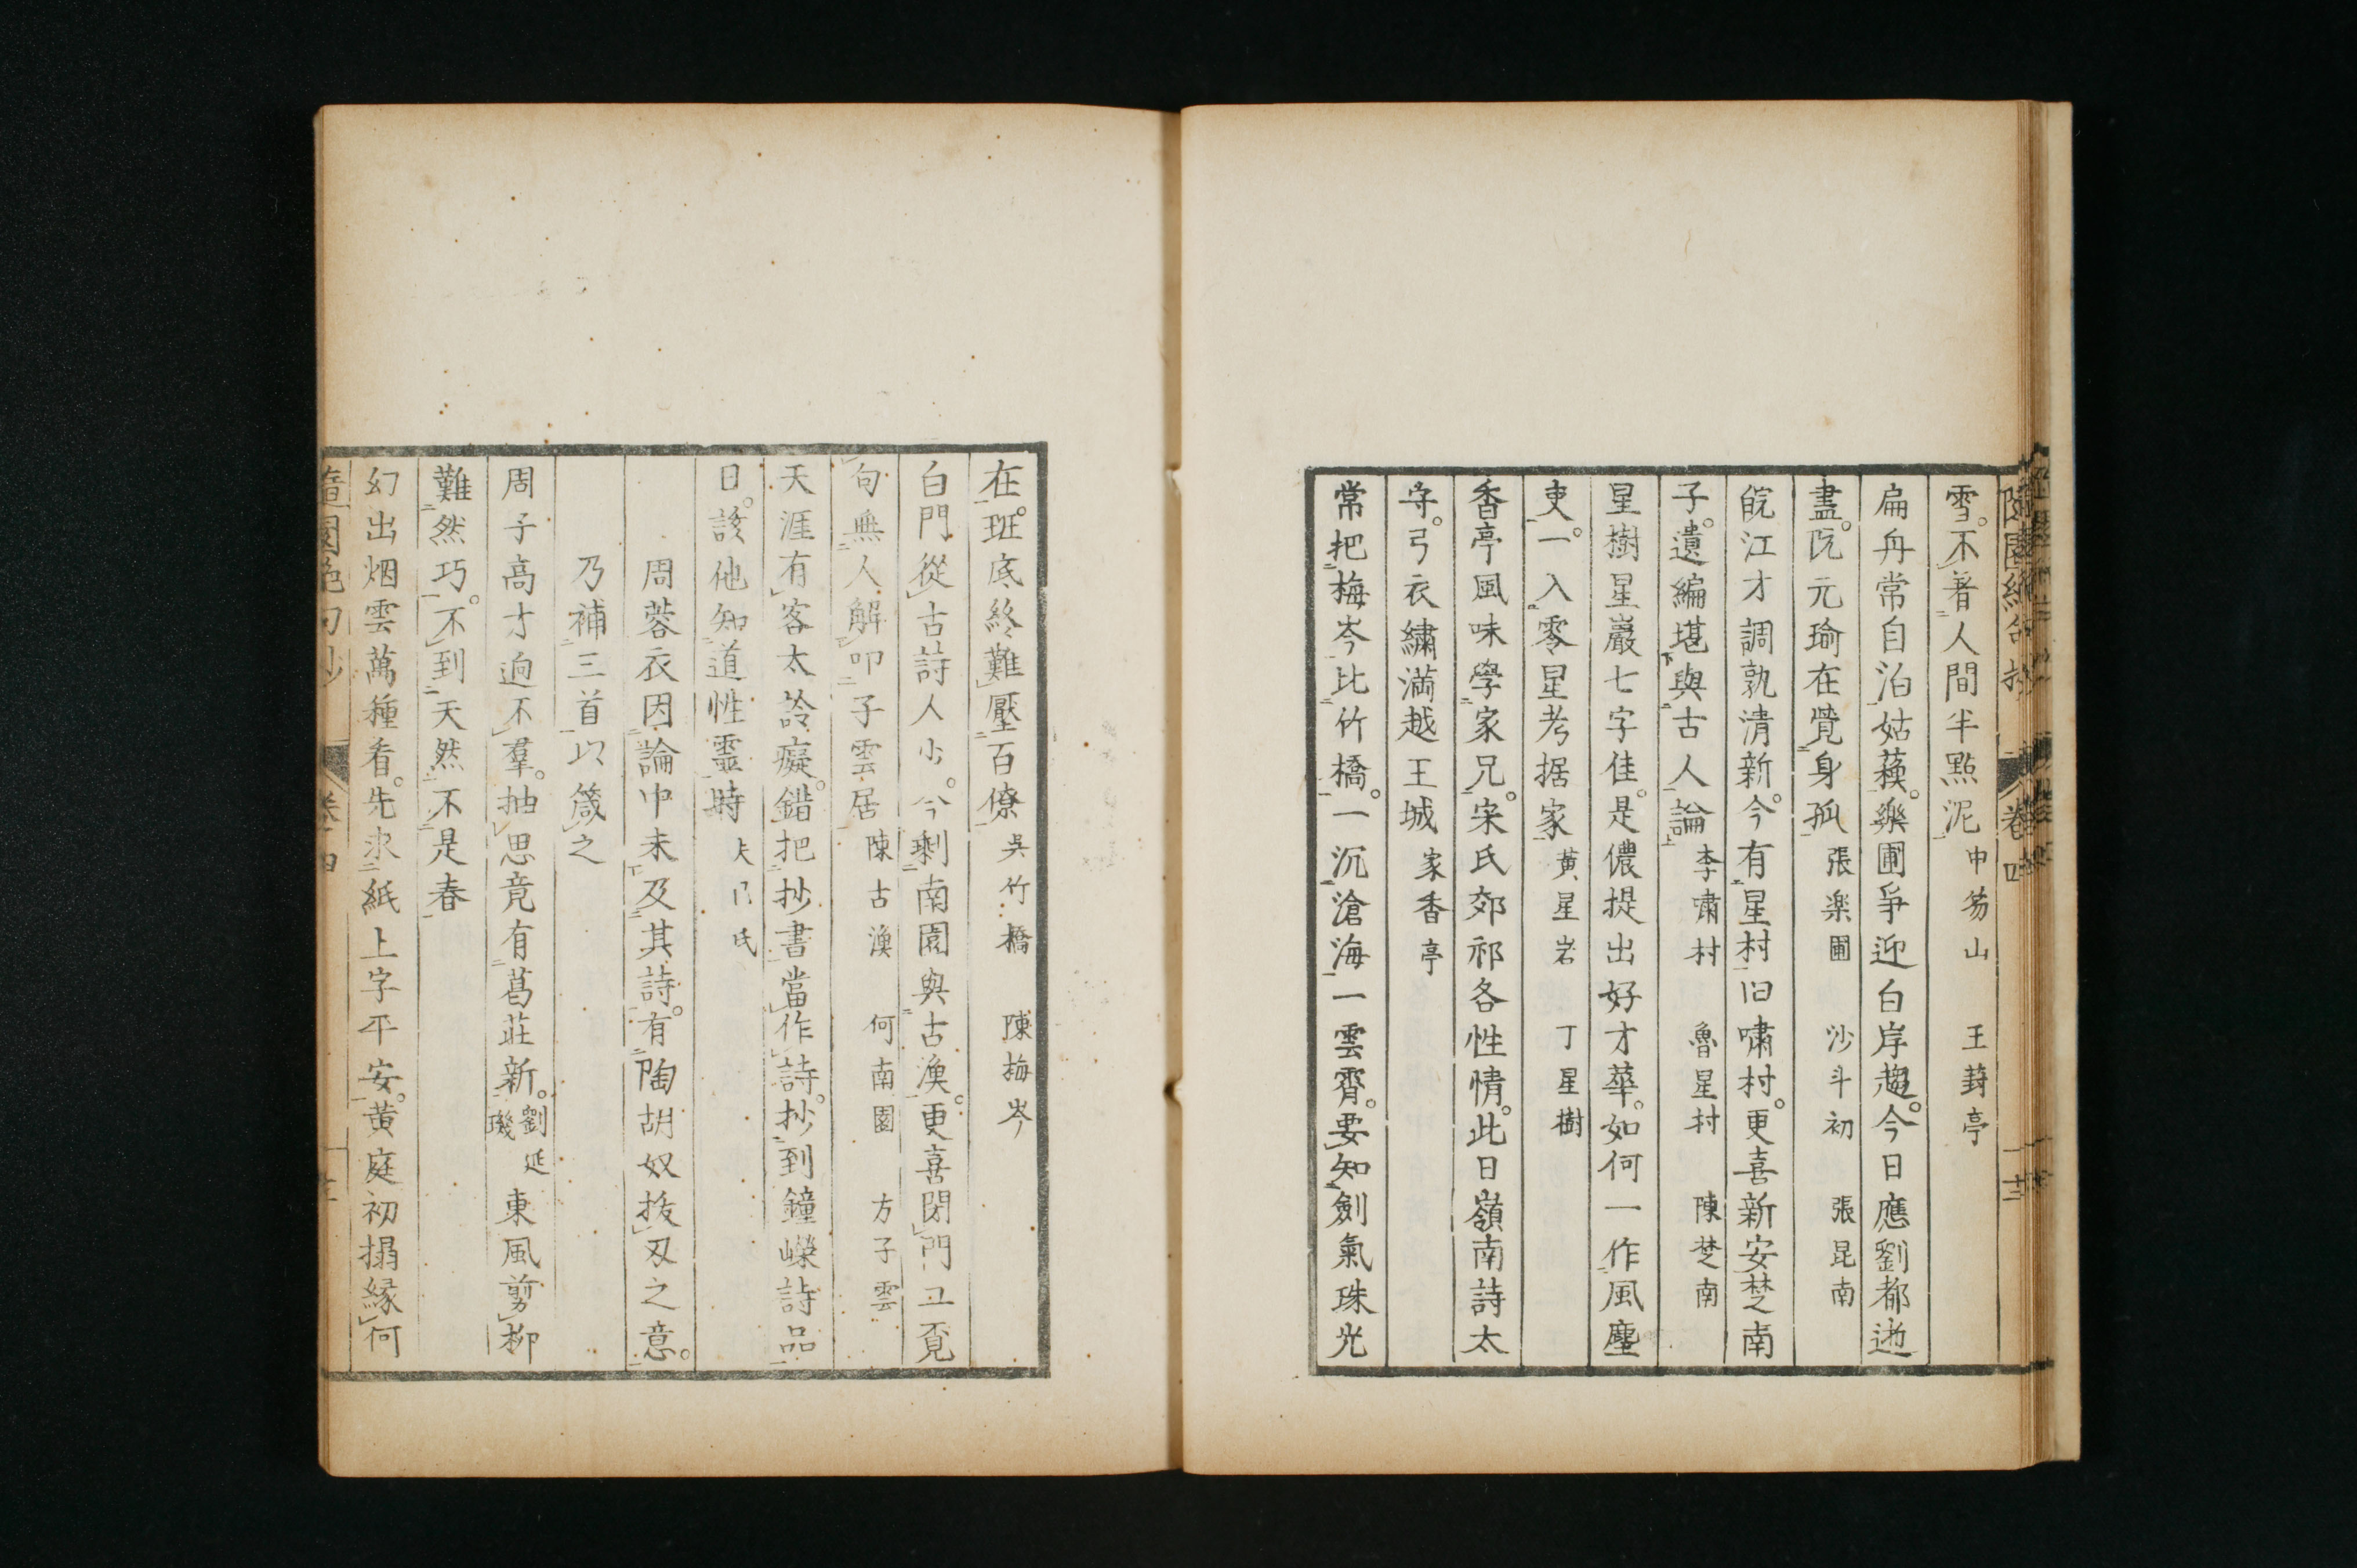 隨園絶句抄 卷四 十三
雪。不著人間半點泥 申笏山 王葑亭
扁舟常自泊姑蘓。樂圃爭迎白岸趨。今日應劉都逝
盡。阮元瑜在覺身孤 張楽圃 沙斗初 張昆南
皖江才調孰清新。今有星村旧嘯村。更喜新安楚南
子。遺編堪與古人論 李嘯村 魯星村 陳楚南
星樹星巖七字佳。是儂提出好才華。如何一作風塵
吏。一入零星考据家 黄星岩 丁星樹
香亭風味學家兄。宋氏郊祁各性情。此日嶺南詩太
守。弓衣繍満越王城 家香亭
常把梅岑比竹橋。一沉滄海一雲霄。要知劍氣珠光
在。班底終難壓百僚 吳竹橋 陳梅岑
白門從古詩人少。今剩南園與古漁。更喜閉門工覓
句無人解叩子雲居 陳古漁 何南園 方子雲
天涯有客太詅癡。錯把抄書當作詩。抄到鐘嶸詩品
日。該他知道性靈時
周蓉衣因論中未及其詩。有陶胡奴拔刄之意。
乃補三首以箴之
周子高才迥不羣。抽思竟有葛莊新。劉延璣 東風剪柳
難然巧。不到天然不是春
幻出烟雲萬種看。先求紙上字平安。黄庭初搨緣何
隨園絶句抄 卷四